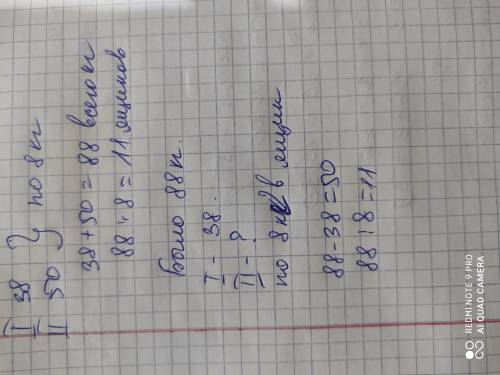 I 38
II 50 } по 8 кг
38 + 50 = 88 всего кг
88 : 8 = 11 ящиков
Было 88 кг.
I - 38.
II - ?
по 8 кг в ящик
88 - 38 = 50
88 : 8 = 11
REDMI NOTE 9 PRO
AI QUAD CAMERA